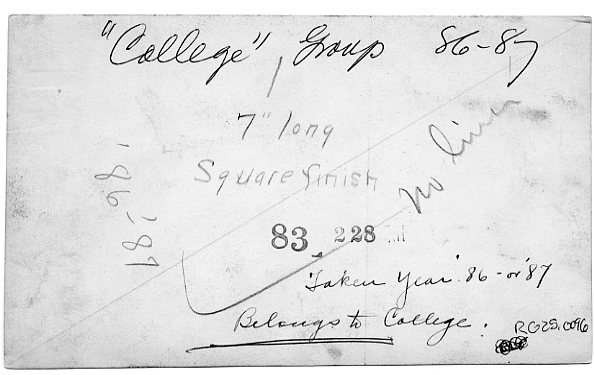 "College", Group 86-87
7" long
Square finish
no line
'86-'87
83 228
Taken Year '86-or '87
Belongs to College.
RG25.0096